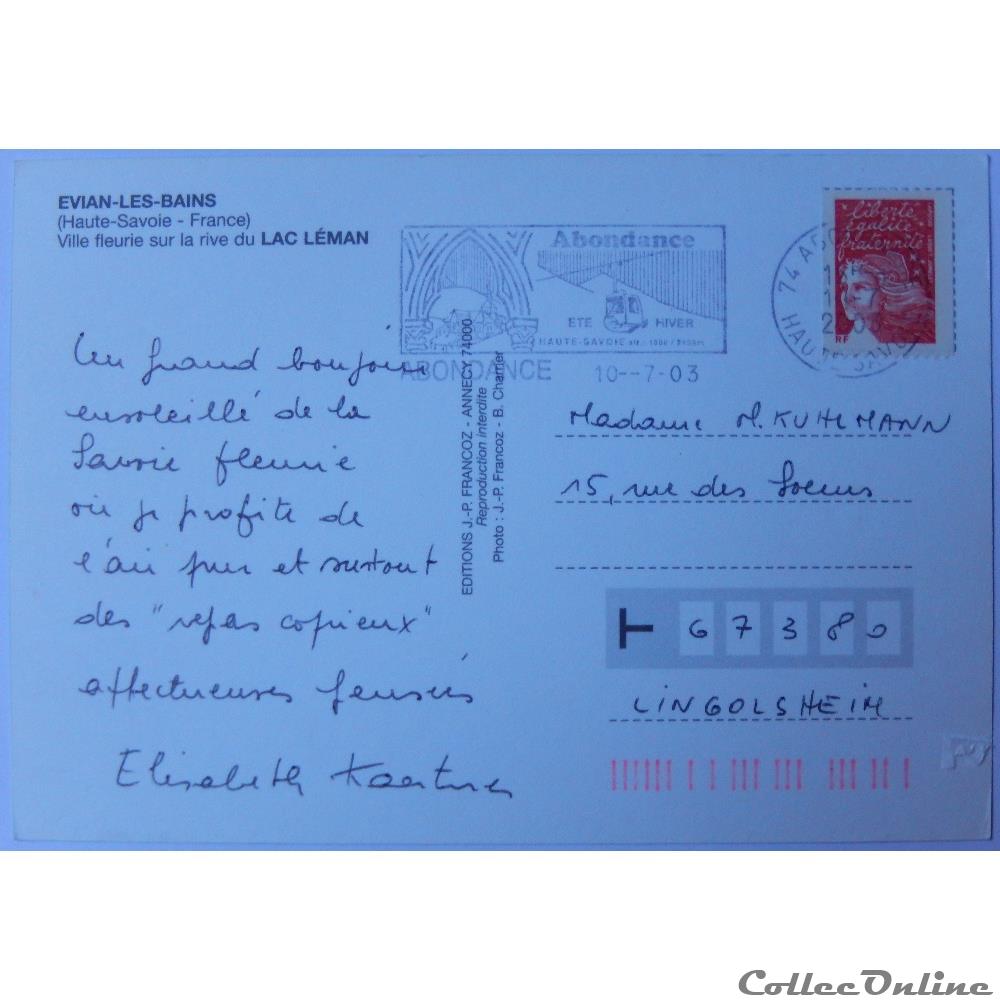 EVIAN-LES-BAINS
(Haute-Savoie - France)
Ville fleurie sur la rive du LAC LÉMAN
Abondance
ETE HIVER
HAUTE-SAVOIE
ABONDANCE 10--7-03
74
HAUTE-SAVOIE
liberté
égalité
fraternité
RF
Un grand bonjour
ensoleillé de la
Savoie fleurie
où je profite de
l'air pur et surtout
des "repas copieux"
affectueuses pensées
Elisabeth
EDITIONS J.-P. FRANCOZ - ANNECY 74000
Reproduction interdite
Photo : J.-P. Francoz - B. Charrier
Madame M. KUHLMANN
15, rue des Soeurs
67380
LINGOLSHEIM
CollecOnline